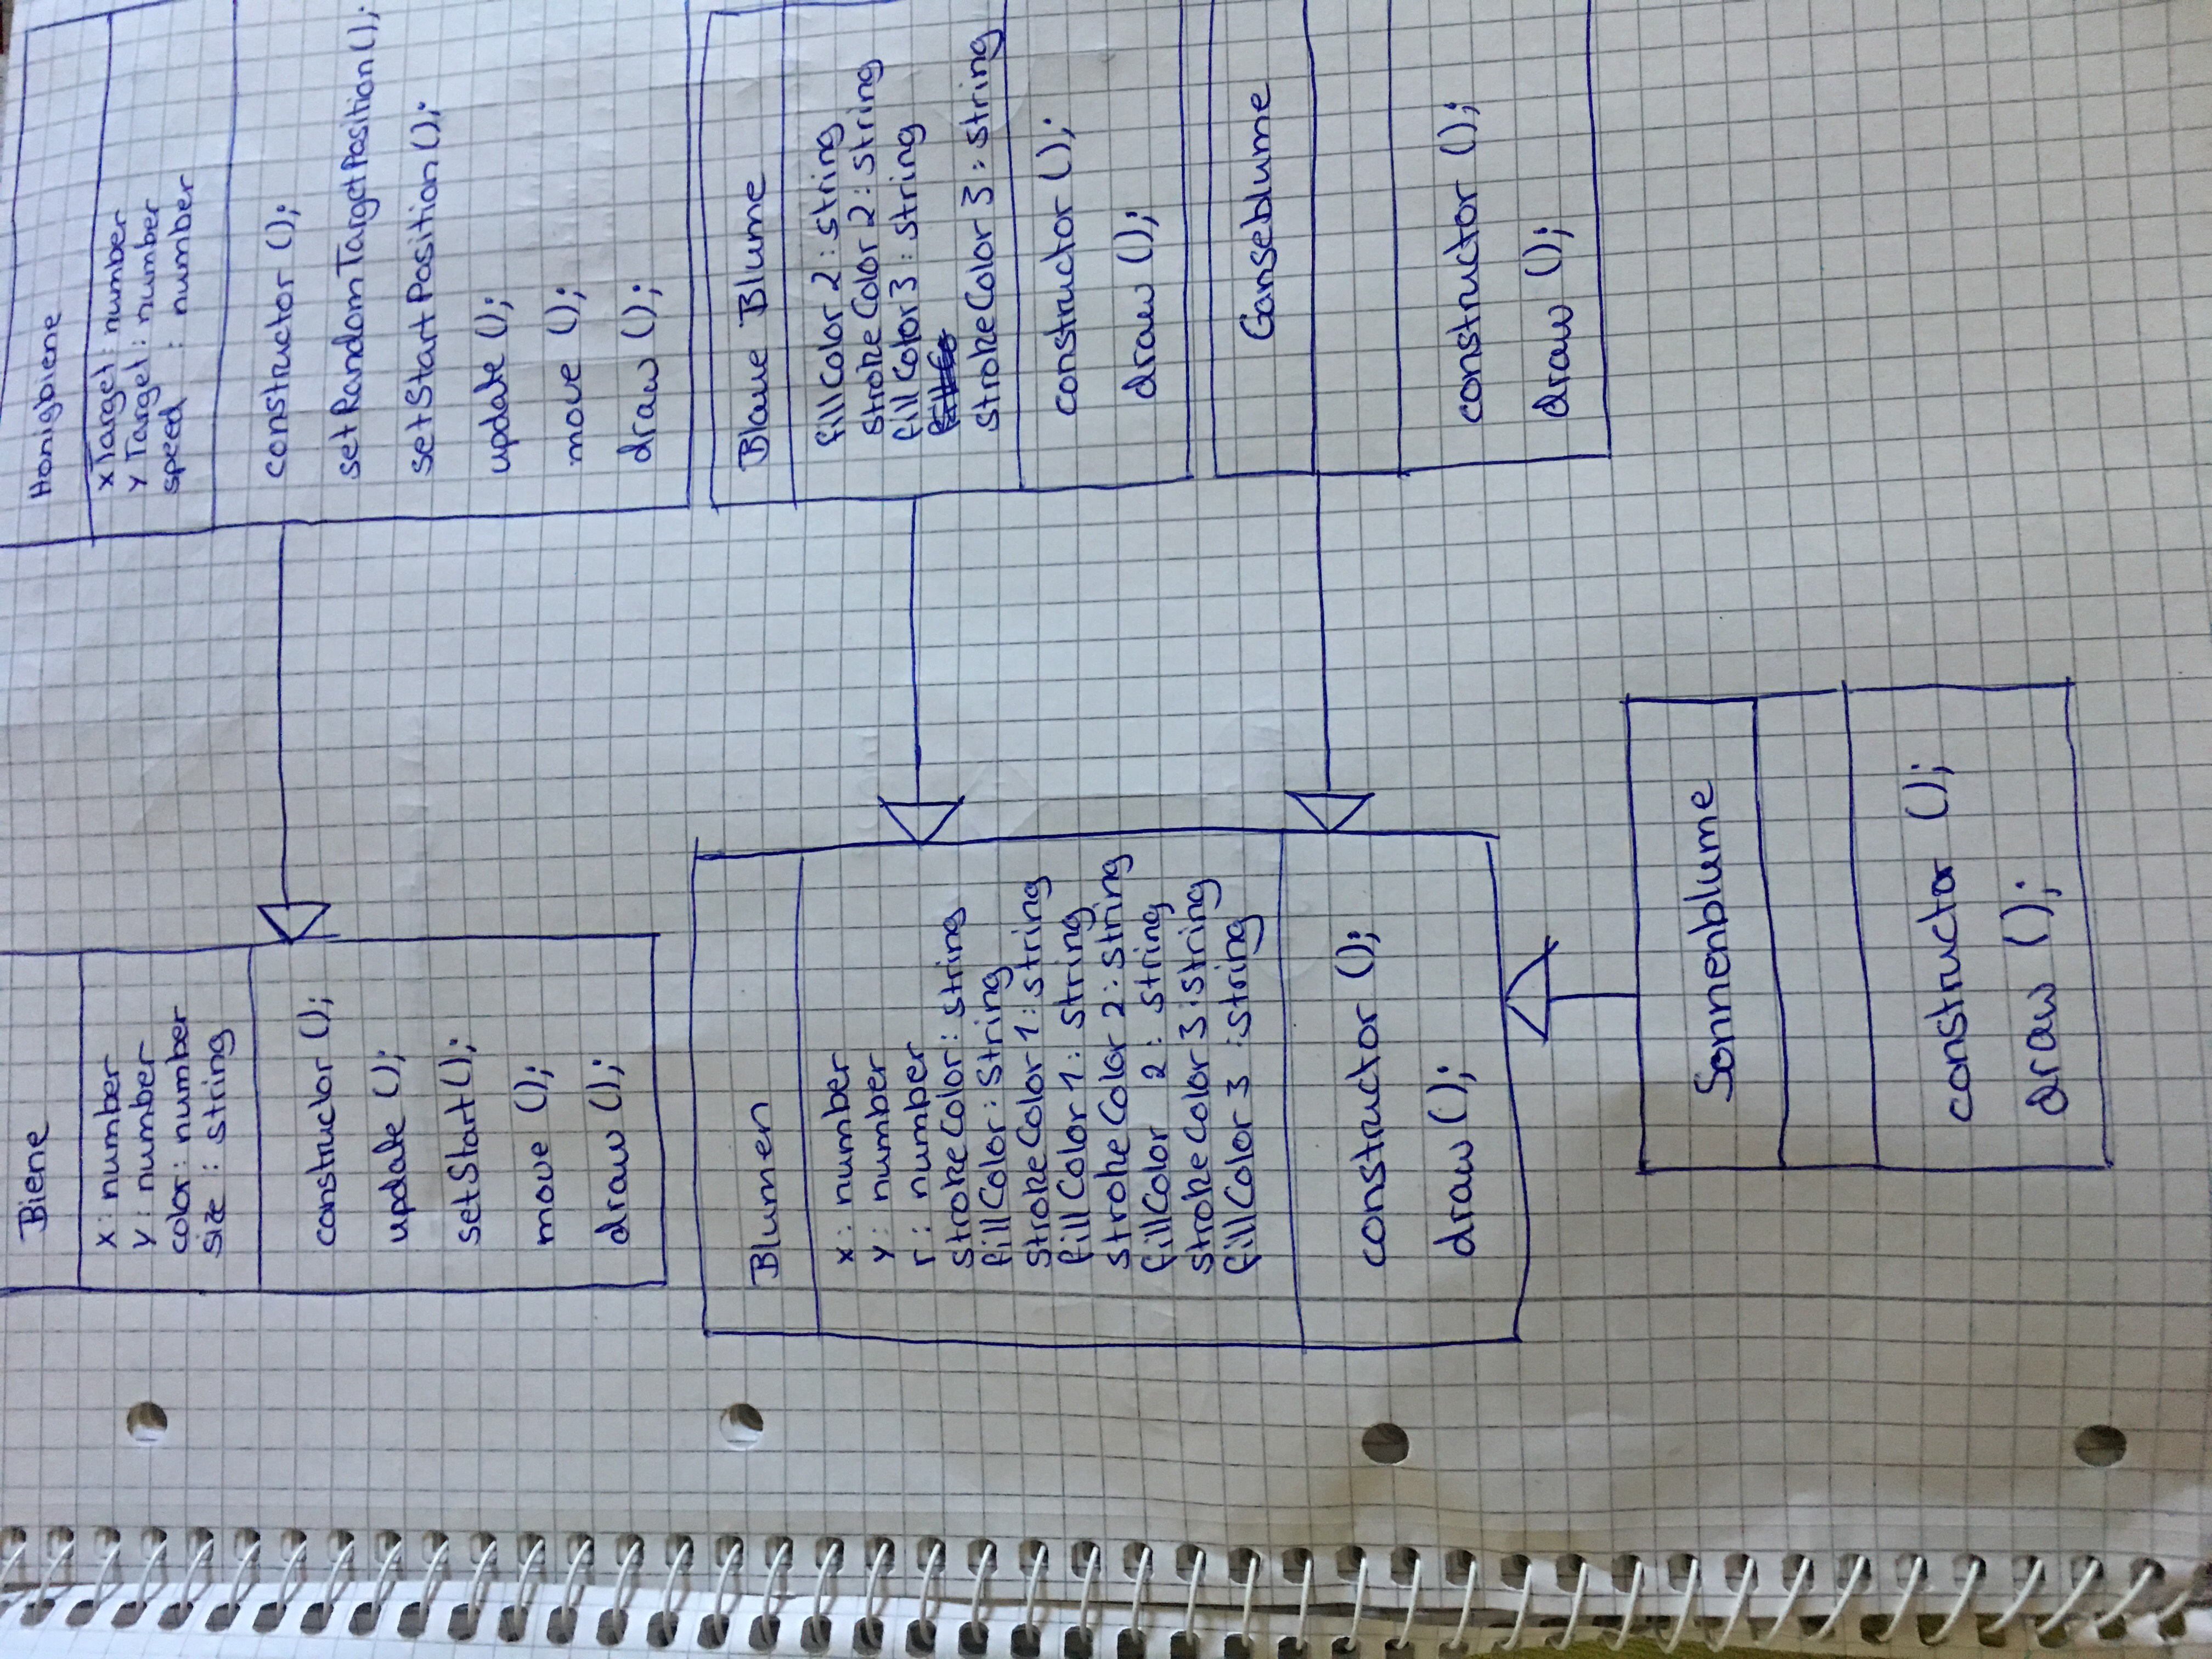 Biene
x: number
y: number
color: number
size : string
constructor ();
update ();
setStart();
move ();
draw ();
Honigbiene
xTarget: number
yTarget: number
speed : number
constructor ();
setRandomTargetPosition();
setStartPosition();
update ();
move ();
draw ();
Blumen
x: number
y: number
r: number
strokeColor: string
fillColor: String
strokeColor 1: string
fillColor 1: string
strokeColor 2: string
fillColor 2: string
strokeColor 3: string
fillColor 3 : string
constructor ();
draw ();
Blaue Blume
fillColor 2: string
strokeColor 2: string
fillColor 3: string
strokeColor 3: string
constructor ();
draw ();
Ganseblume
constructor ();
draw ();
Sonnenblume
constructor ();
draw ();